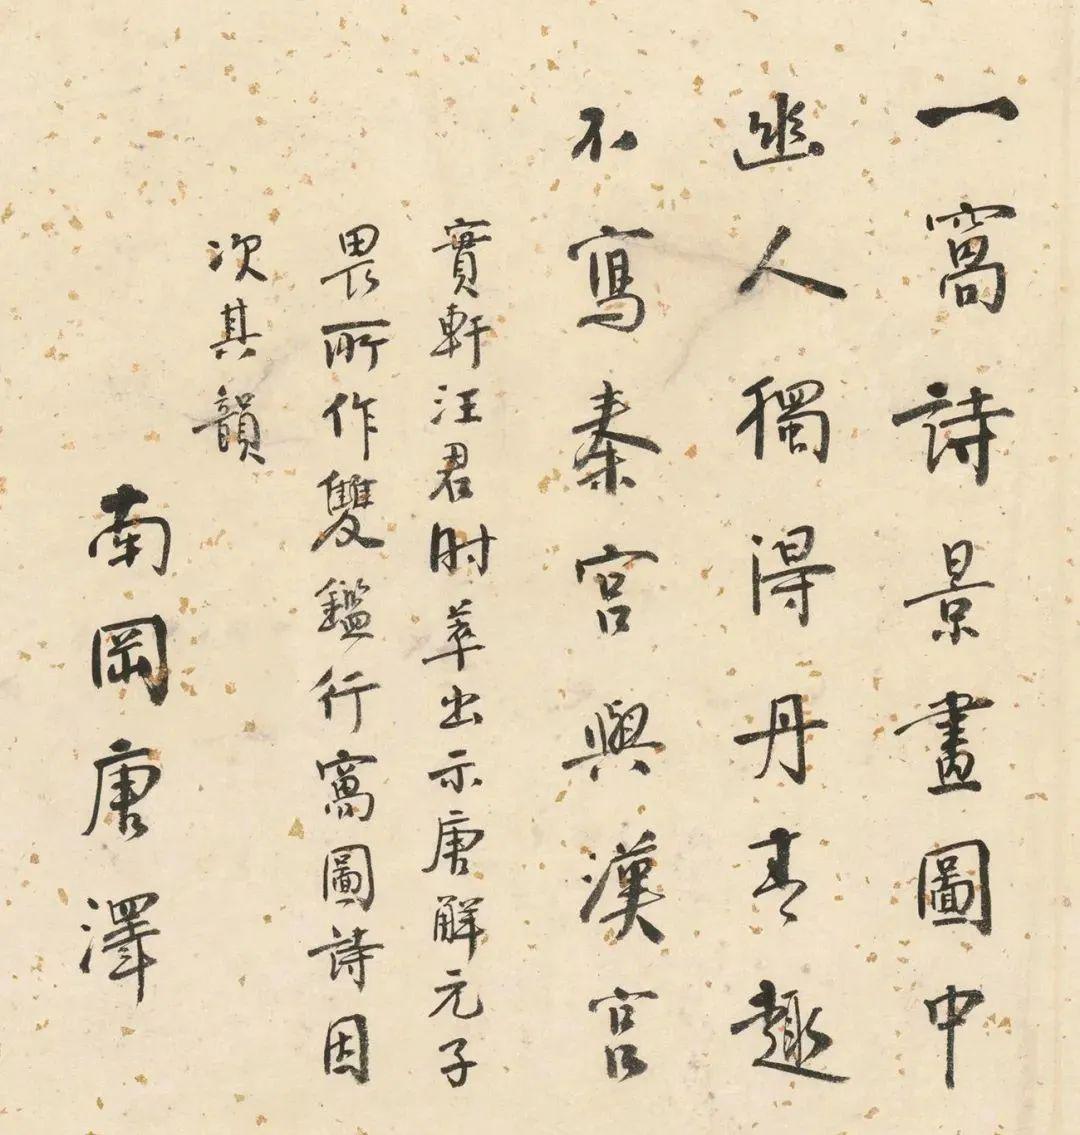 一窩詩景畫圖中
幽人獨得丹青趣
不寫秦宮與漢宮
實軒汪君時萃出示唐解元子
畏所作雙鑑行窩圖詩因
次其韻
南岡唐澤